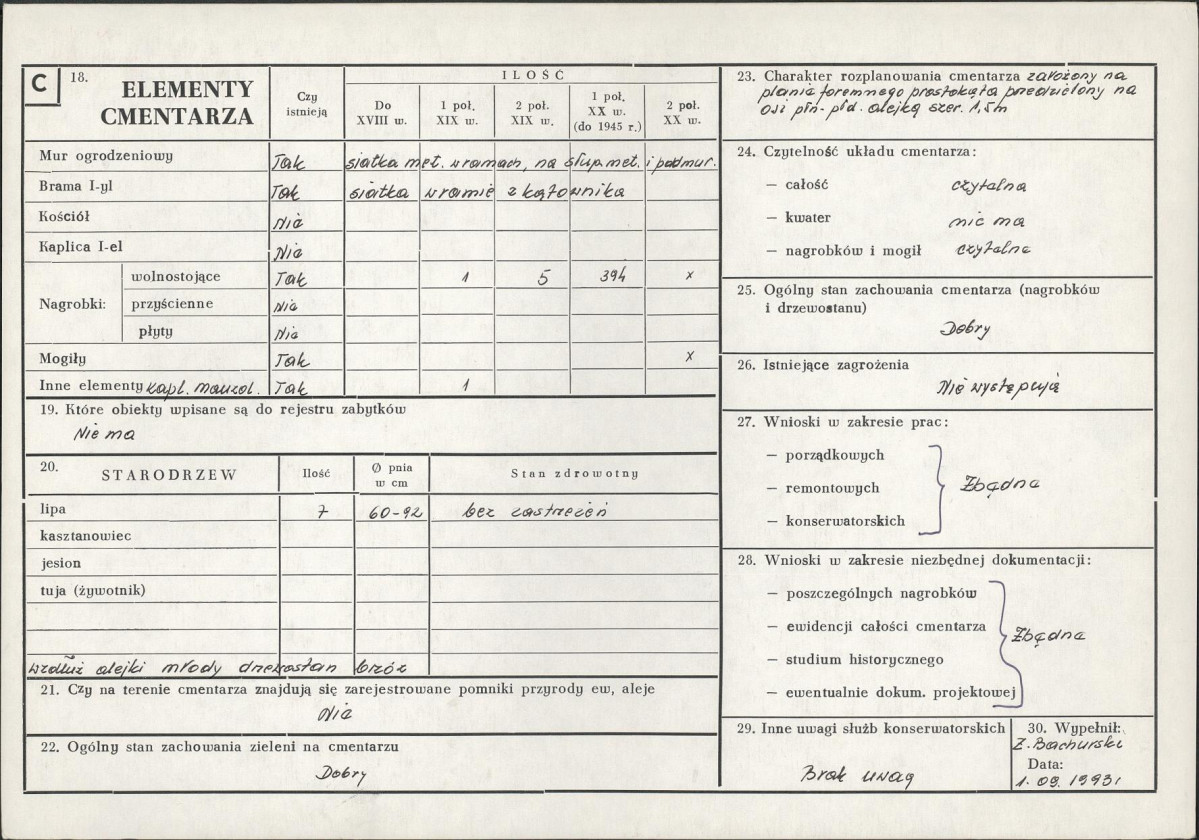 C 18. ELEMENTY CMENTARZA
Czy istnieją
ILOŚĆ
Do XVIII w.
1 poł. XIX w.
2 poł. XIX w.
1 poł. XX w. (do 1945 r.)
2 poł. XX w.
Mur ogrodzeniowy Tak siatka met. w ramach, na słup. met. i podmur.
Brama I-yl Tak siatka w ramie z kątownika
Kościół Nie
Kaplica I-el Nie
Nagrobki:
wolnostojące Tak 1 5 394 x
przyścienne Nie
płyty Nie
Mogiły Tak x
Inne elementy kapl. mauzol. Tak 1
19. Które obiekty wpisane są do rejestru zabytków
Nie ma
20. STARODRZEW Ilość Ø pnia w cm Stan zdrowotny
lipa 7 60-92 bez zastrzeżeń
kasztanowiec
jesion
tuja (żywotnik)
wzdłuż alejki młody drzewostan brzóz
21. Czy na terenie cmentarza znajdują się zarejestrowane pomniki przyrody ew, aleje
Nie
22. Ogólny stan zachowania zieleni na cmentarzu
Dobry
23. Charakter rozplanowania cmentarza założony na
planie foremnego prostokąta przedzielony na
osi płn.-płd. alejką szer. 1,5m
24. Czytelność układu cmentarza:
— całość czytelna
— kwater nie ma
— nagrobków i mogił czytelne
25. Ogólny stan zachowania cmentarza (nagrobków
i drzewostanu)
Dobry
26. Istniejące zagrożenia
Nie występują
27. Wnioski w zakresie prac:
— porządkowych
— remontowych Zbędne
— konserwatorskich
28. Wnioski w zakresie niezbędnej dokumentacji:
— poszczególnych nagrobków
— ewidencji całości cmentarza Zbędne
— studium historycznego
— ewentualnie dokum. projektowej
29. Inne uwagi służb konserwatorskich
Brak uwag
30. Wypełnił:
Z. Bachurski
Data:
1. 09. 1993r